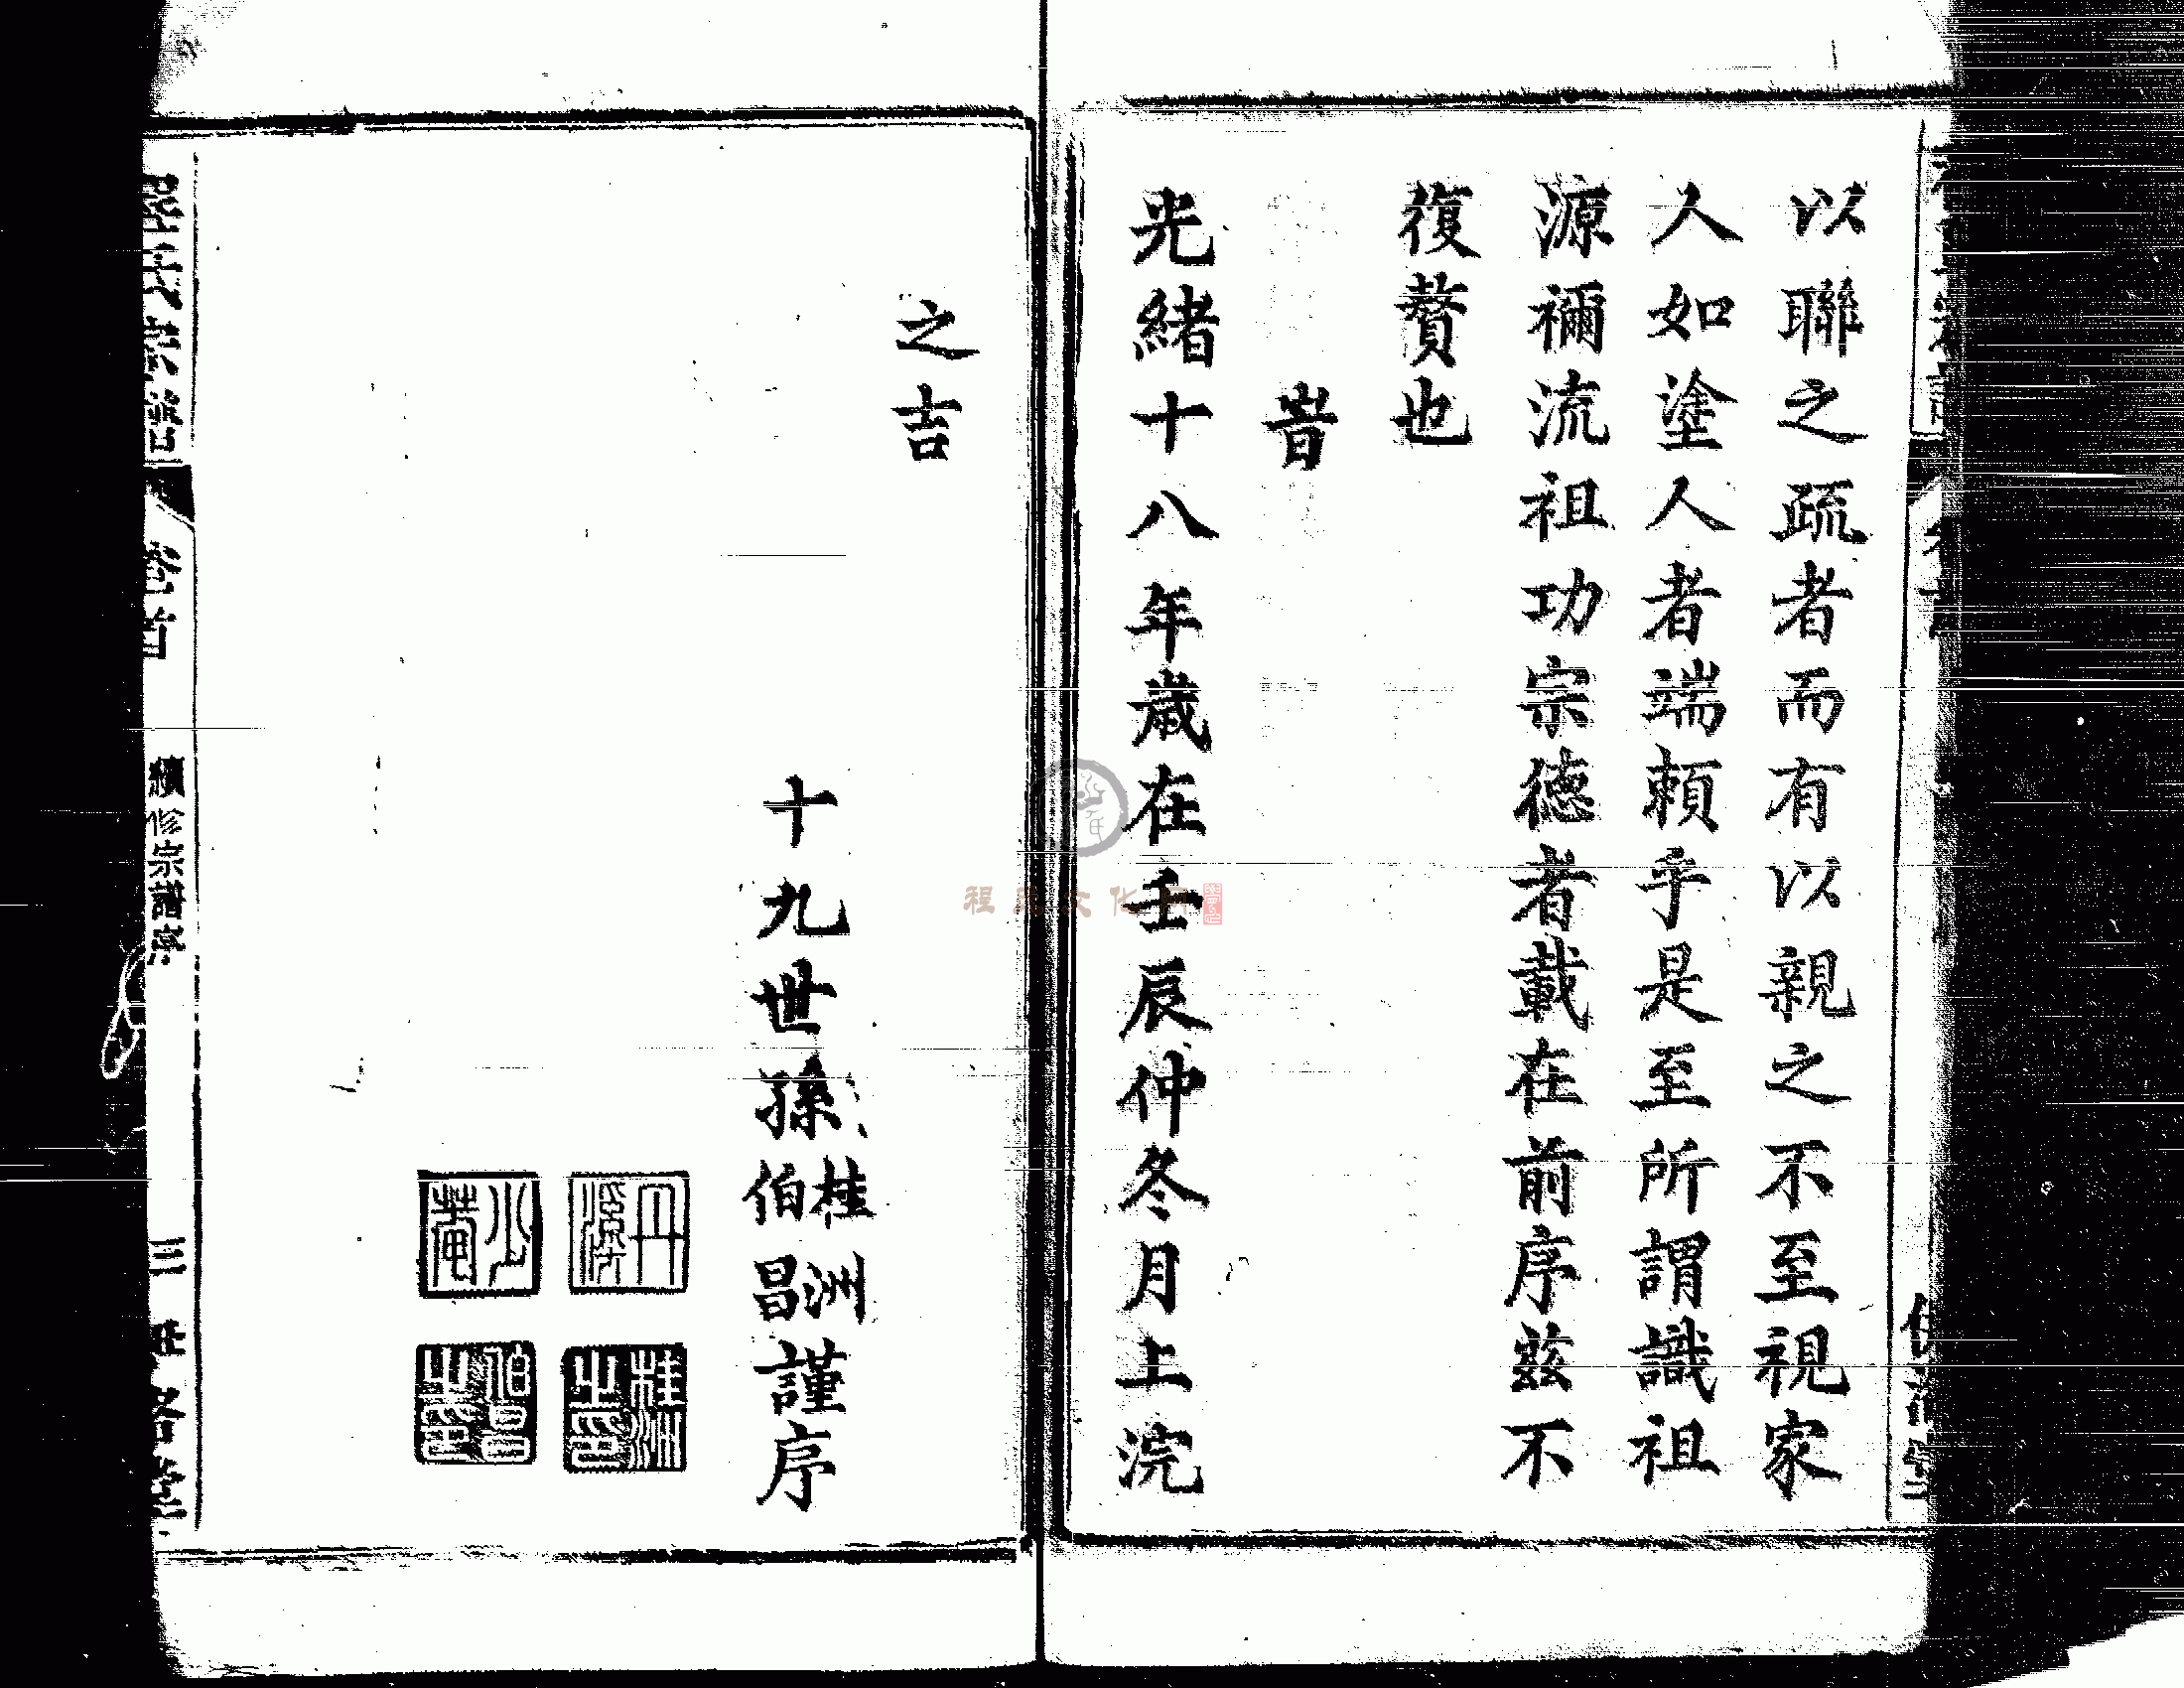 以聯之疏者而有以親之不至視家
人如塗人者端賴乎是至所謂識祖
源禰流祖功宗德者載在前序茲不
復贅也
旹
光緒十八年歲在壬辰仲冬月上浣
之吉
十九世孫桂洲
伯昌謹序
丹
少菴
桂洲之印
伯昌之印
卷首
續修宗譜序
三
程氏文化